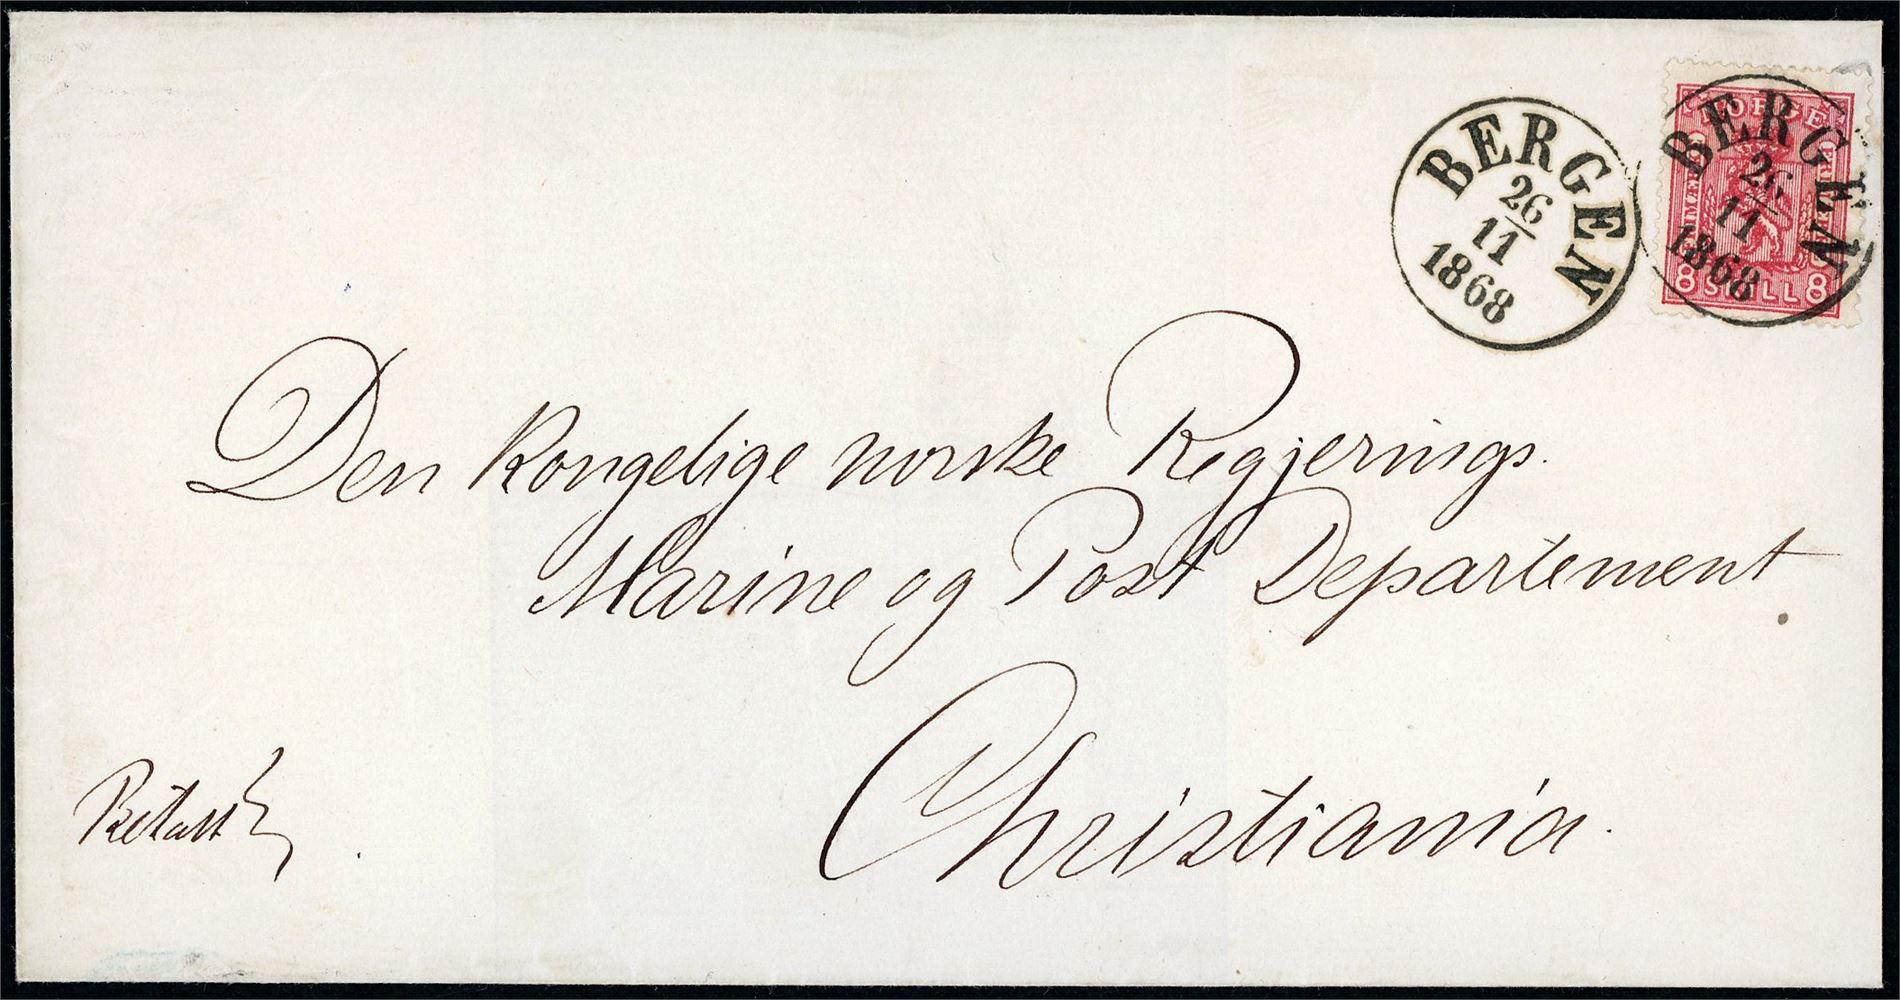 BERGEN
26
11
1868
NORGE
FRIMÆRKE
BERGEN
26
11
1868
8 SKILL 8
Den Kongelige norske Regjerings.
Marine og Post Departement
Christiania.